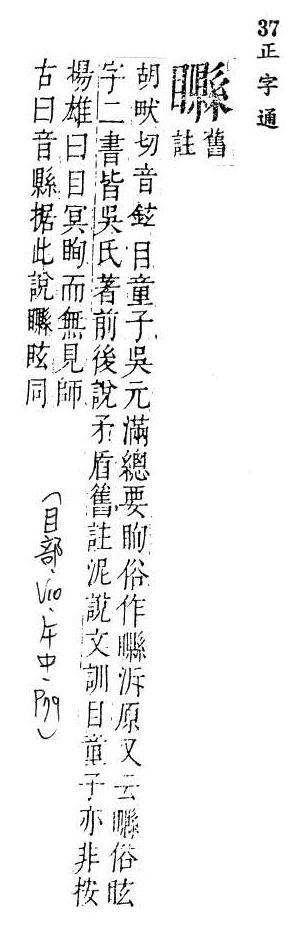 37正字通
矏 舊註
胡畎切音鉉目童子吳元滿總要眴俗作矏泝原又云矏俗眩
字二書皆吳氏著前後說矛盾舊註泥說文訓目童子亦非按
揚雄曰目冥眴而無見師
古曰音縣据此說矏眩同
(目部、V10、午中、P79)